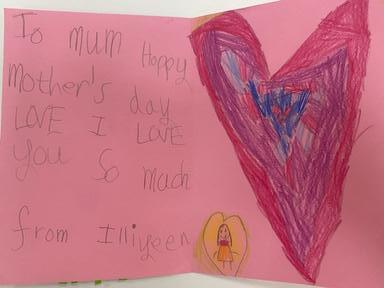 To mum Happy
Mother's day
LOVE I LOVE
you So much
from Illiyeen